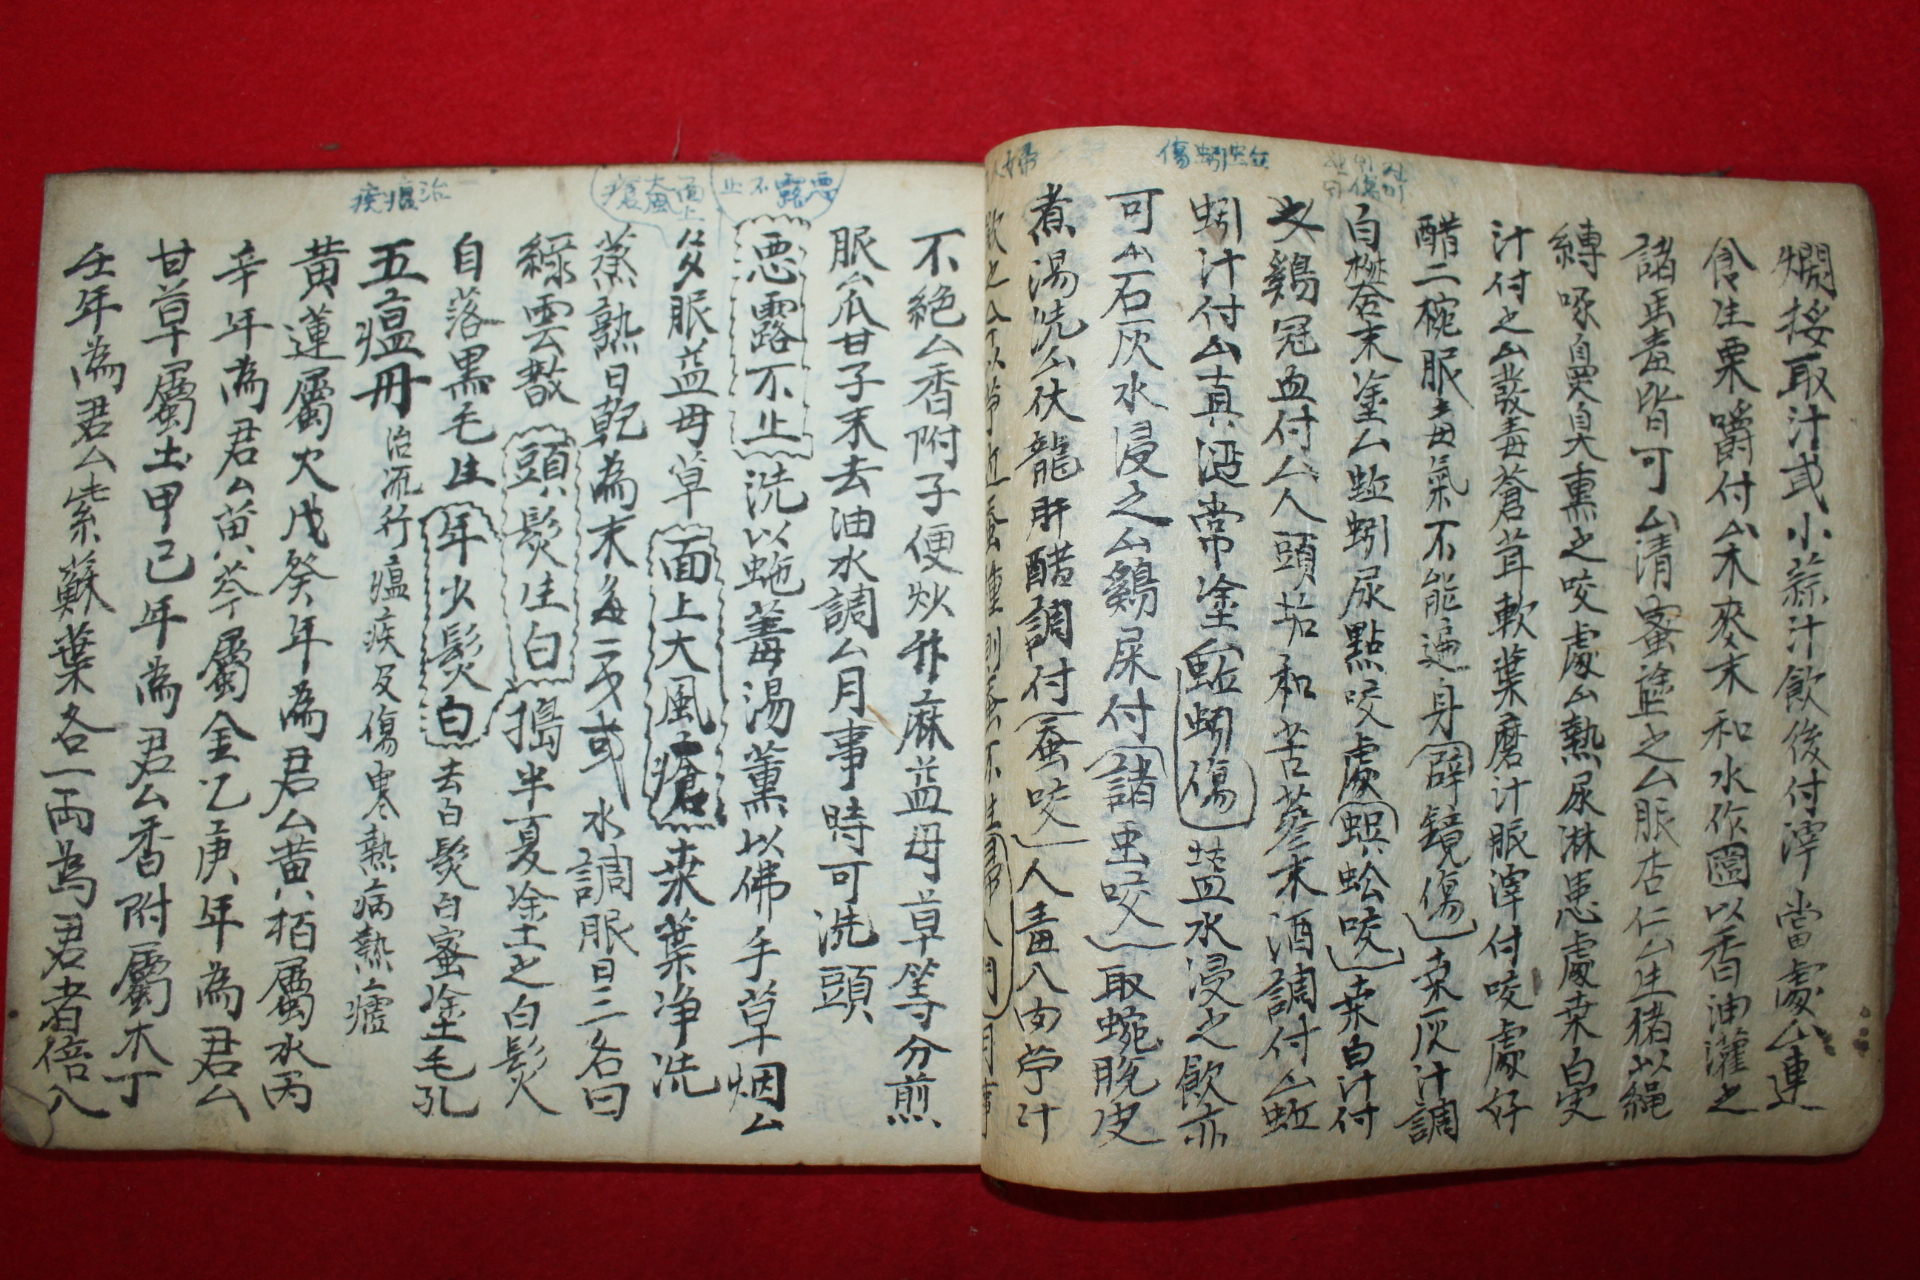 爛挼取汁或小蒜汁飲後付滓當處厶連
食生栗嚼付厶末麥末和水作圈以香油灌之
諸䖝毒皆可厶清蜜塗之厶服杏仁厶生猪以繩
縛啄自臭熏之咬處厶熱尿淋患處桒白
汁付之厶發毒蒼茸軟葉磨汁服滓付咬處好
醋二椀服毒氣不能遍身辟鏡傷桒灰汁調
白礬末塗厶蚯蚓尿點咬處蜈蚣咬桒白汁付
之鷄冠血付厶人頭垢和苦蔘末酒調付厶蚯
蚓汁付厶真油常塗蚯蚓傷塩水浸之飮亦
可厶石灰水浸之厶鷄屎付諸䖝咬取蜿脫皮
煮湯洗厶伏龍肝醋調付蚕咬人毒入肉苧汁
飮之
不絕厶香附子便炒升麻益母草等分煎
服厶瓜甘子末去油水調厶月事時可洗頭
惡露不止洗以蚫羹湯薰以佛手草烟厶
多服益母草面上大風瘡桒葉净洗
蒸熟日乾為末每二戔或水調服日三名曰
綠雲散頭髮生白搗半夏塗之白髮
自落黑毛生年少髮白去白髮白蜜塗毛孔
五瘟丹治流行瘟疾及傷寒熱病熱瘧
黃蓮屬火戊癸年為君厶黃栢屬水丙
辛年為君厶黃芩屬金乙庚年為君厶
甘草屬土甲己年為君厶香附屬木丁
壬年為君厶紫蘇葉各一両為君者倍入
婦
蚯蚓傷
惡露不止
面上大風瘡
治瘟疾